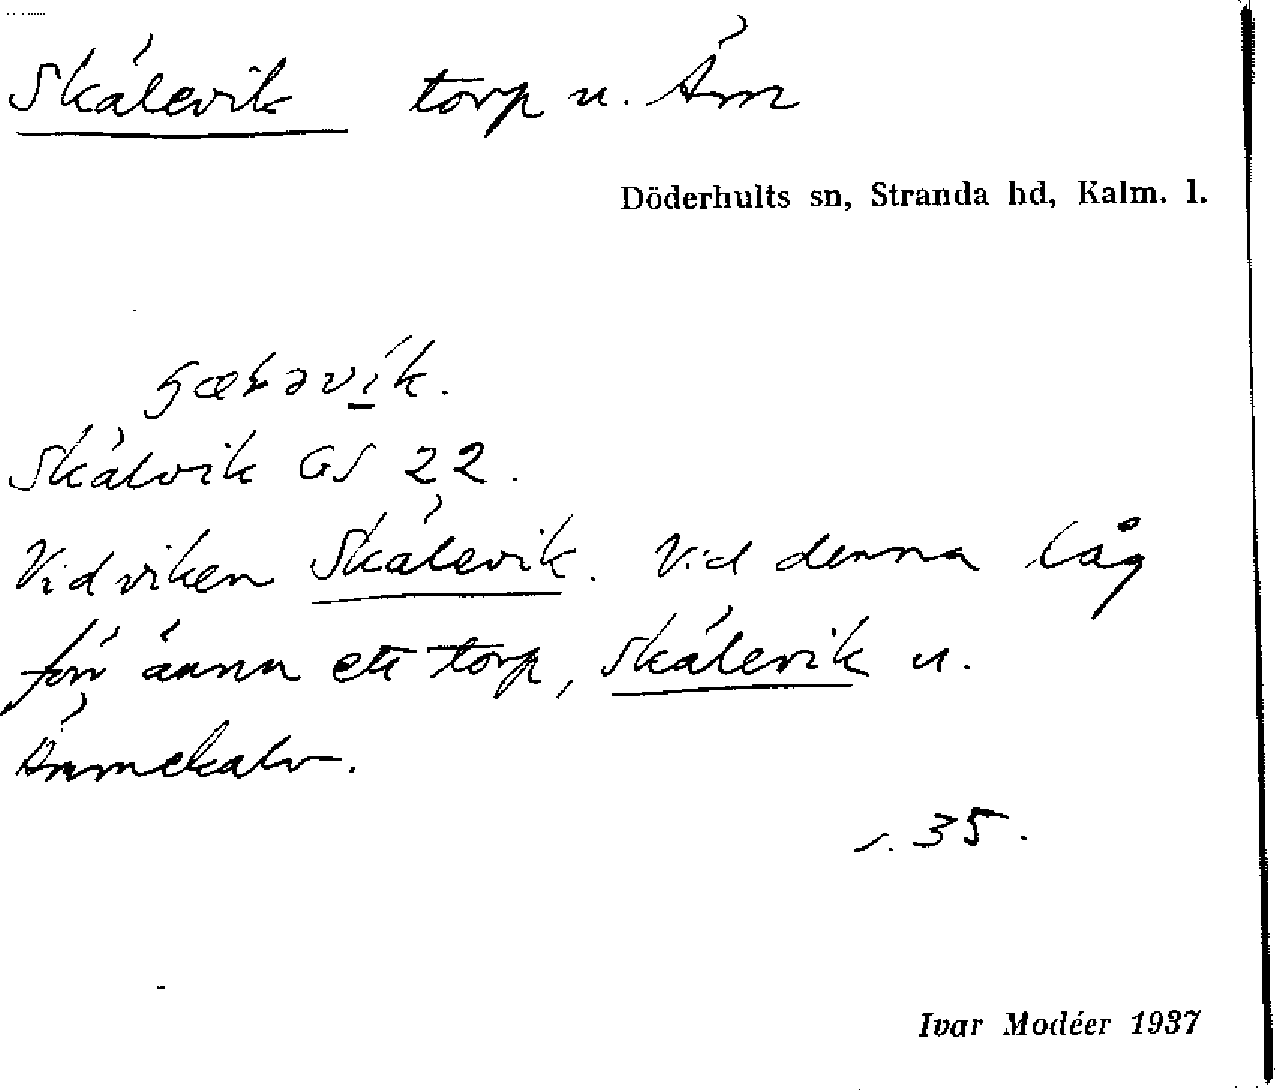 Skälevik torp u. Äm
Döderhults sn, Stranda hd, Kalm. l.
Skälvik GS 22.
Vid viken Skälevik. Vid denna låg
förr ännu ett torp, Skälevik u.
Ämmekalv.
s. 35.
Ivar Modéer 1937